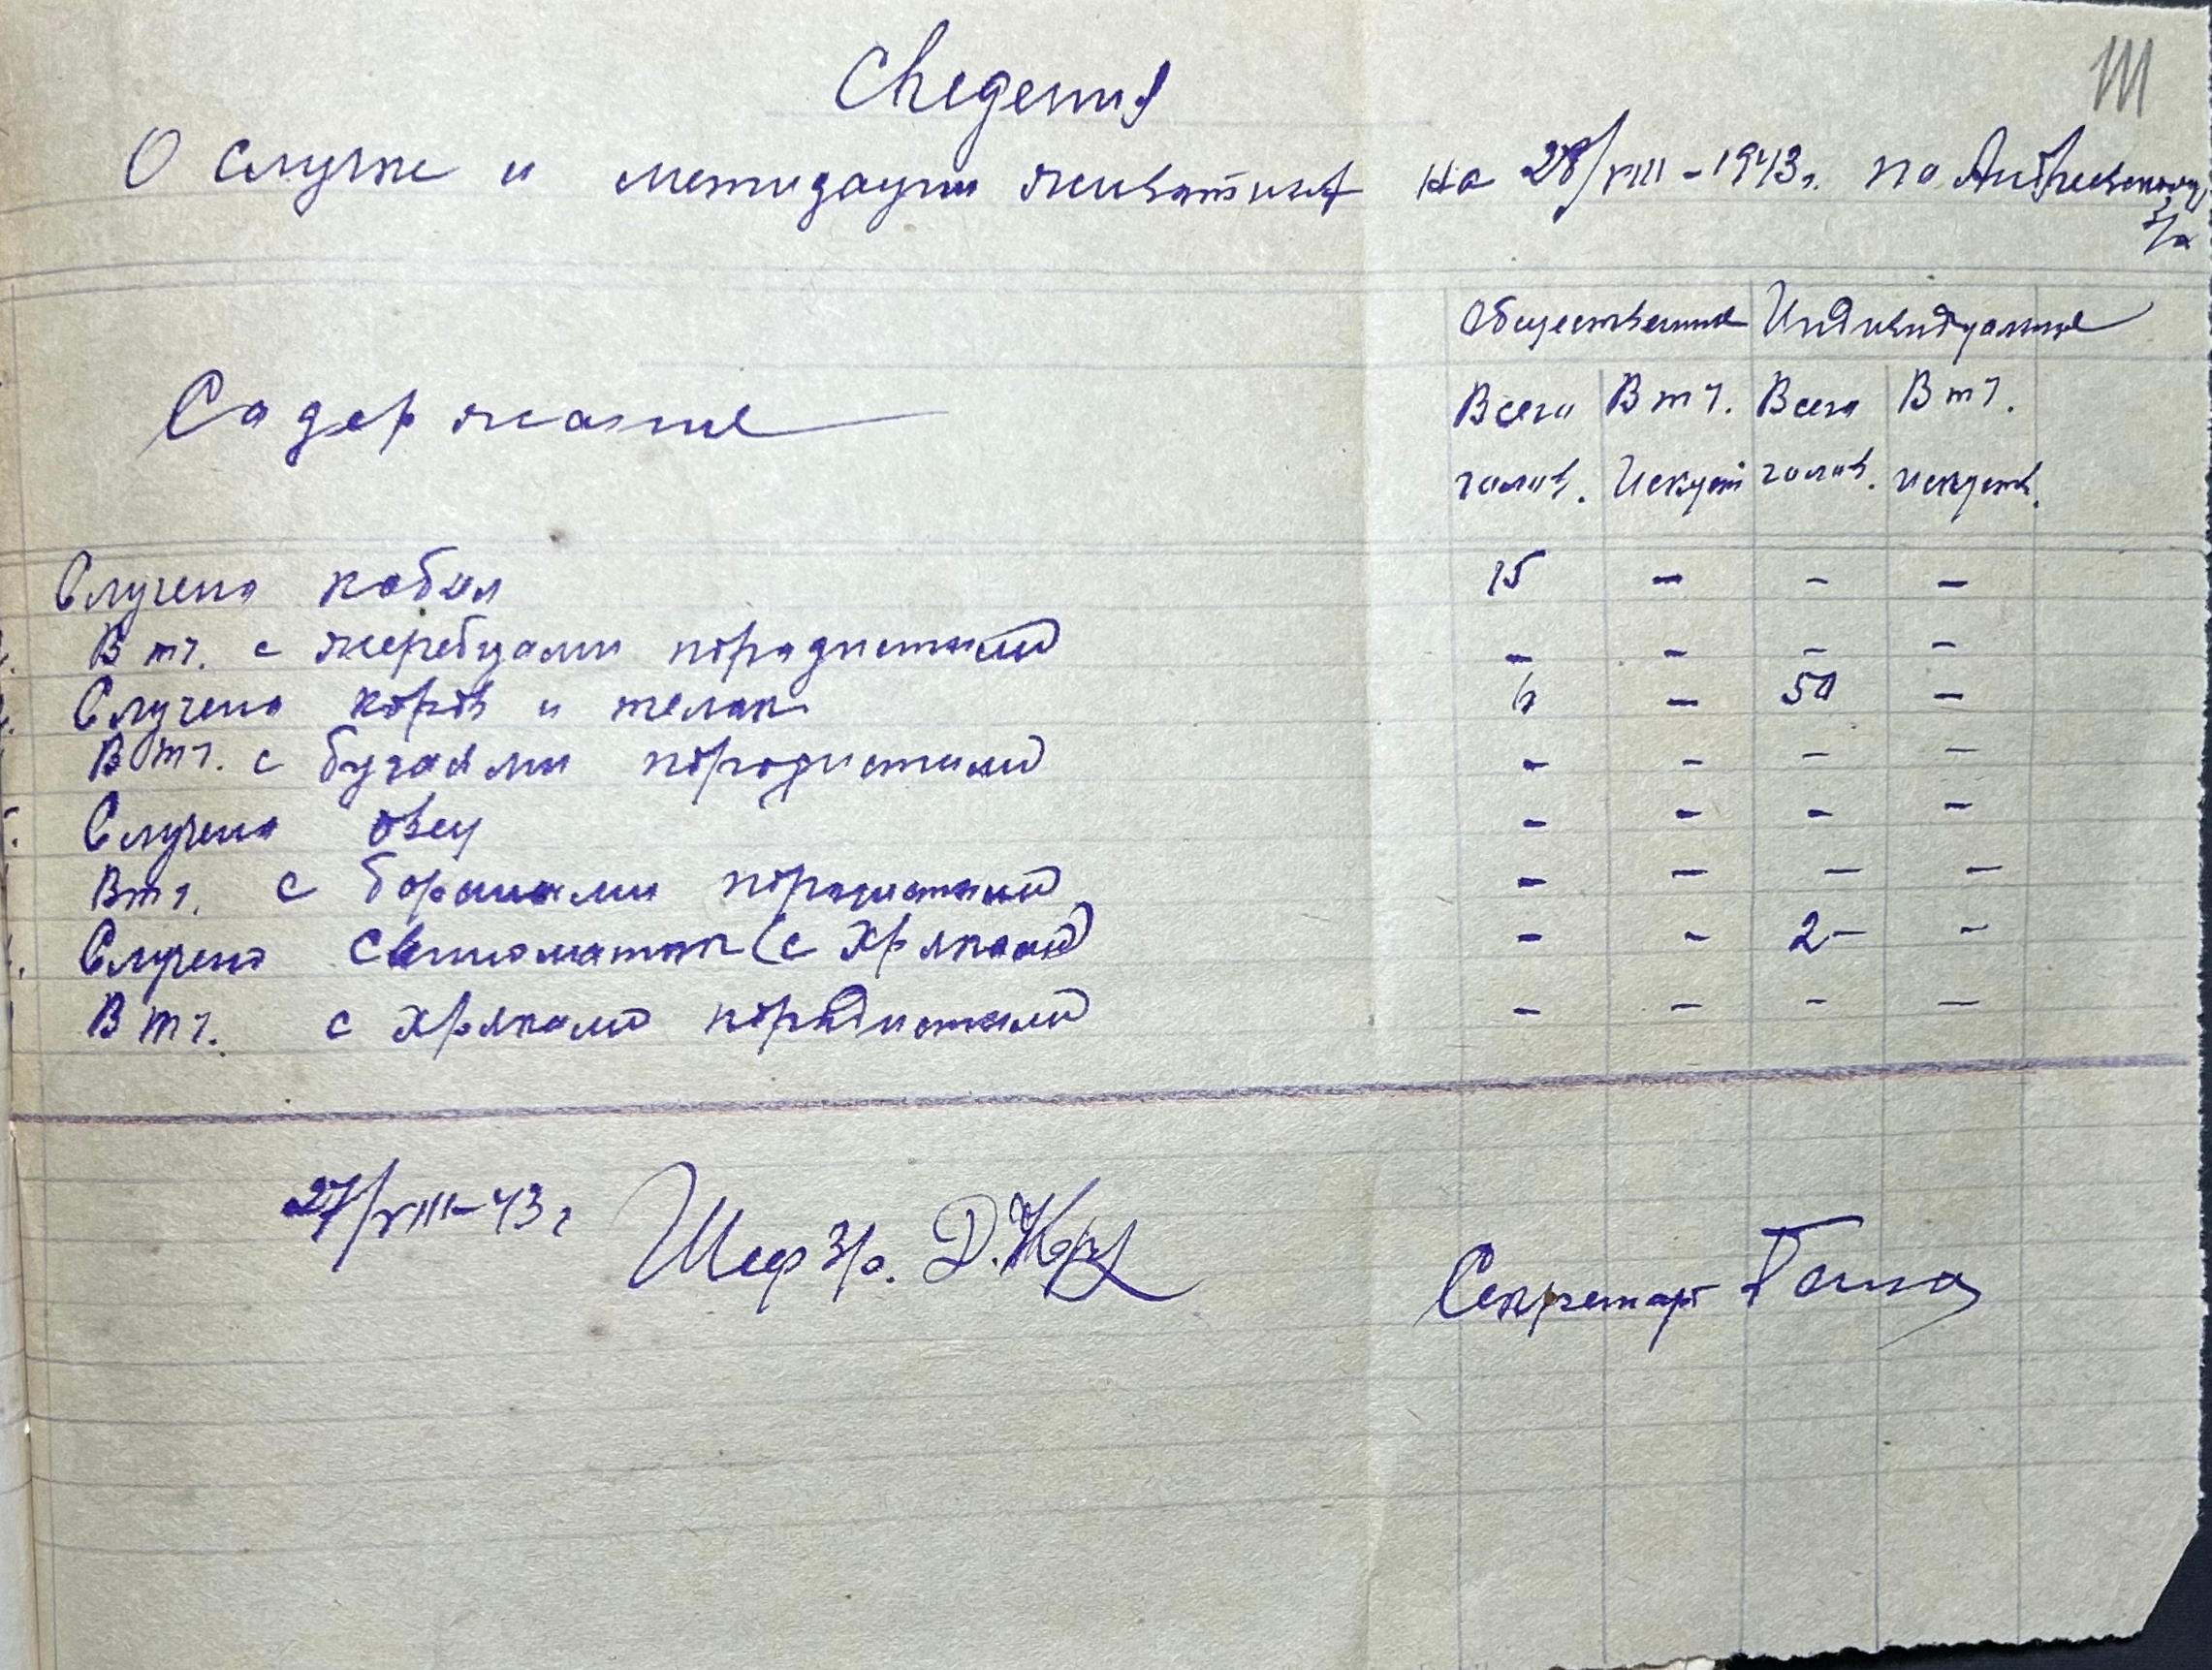 Сведения
О случке и метизации животных на 28/VIII-1943г. по Андреевскому
з/о
Общественные Индивидуальные
Содержание
Всего В т ч. Всего В т ч.
голов. Искуст голов. искуств.
Случено кобыл 15 - - -
В т ч. с жеребцами породистыми - - - -
Случено коров и телок 6 - 50 -
В т ч. с бугаями породистыми - - - -
Случено овец - - - -
В т ч. с баранами породистыми - - - -
Случено свиноматок (с хряками) - - 2- -
В т ч. с хряками породистыми - - - -
27/VIII-43г Шеф з/о. Д.
Секретарь